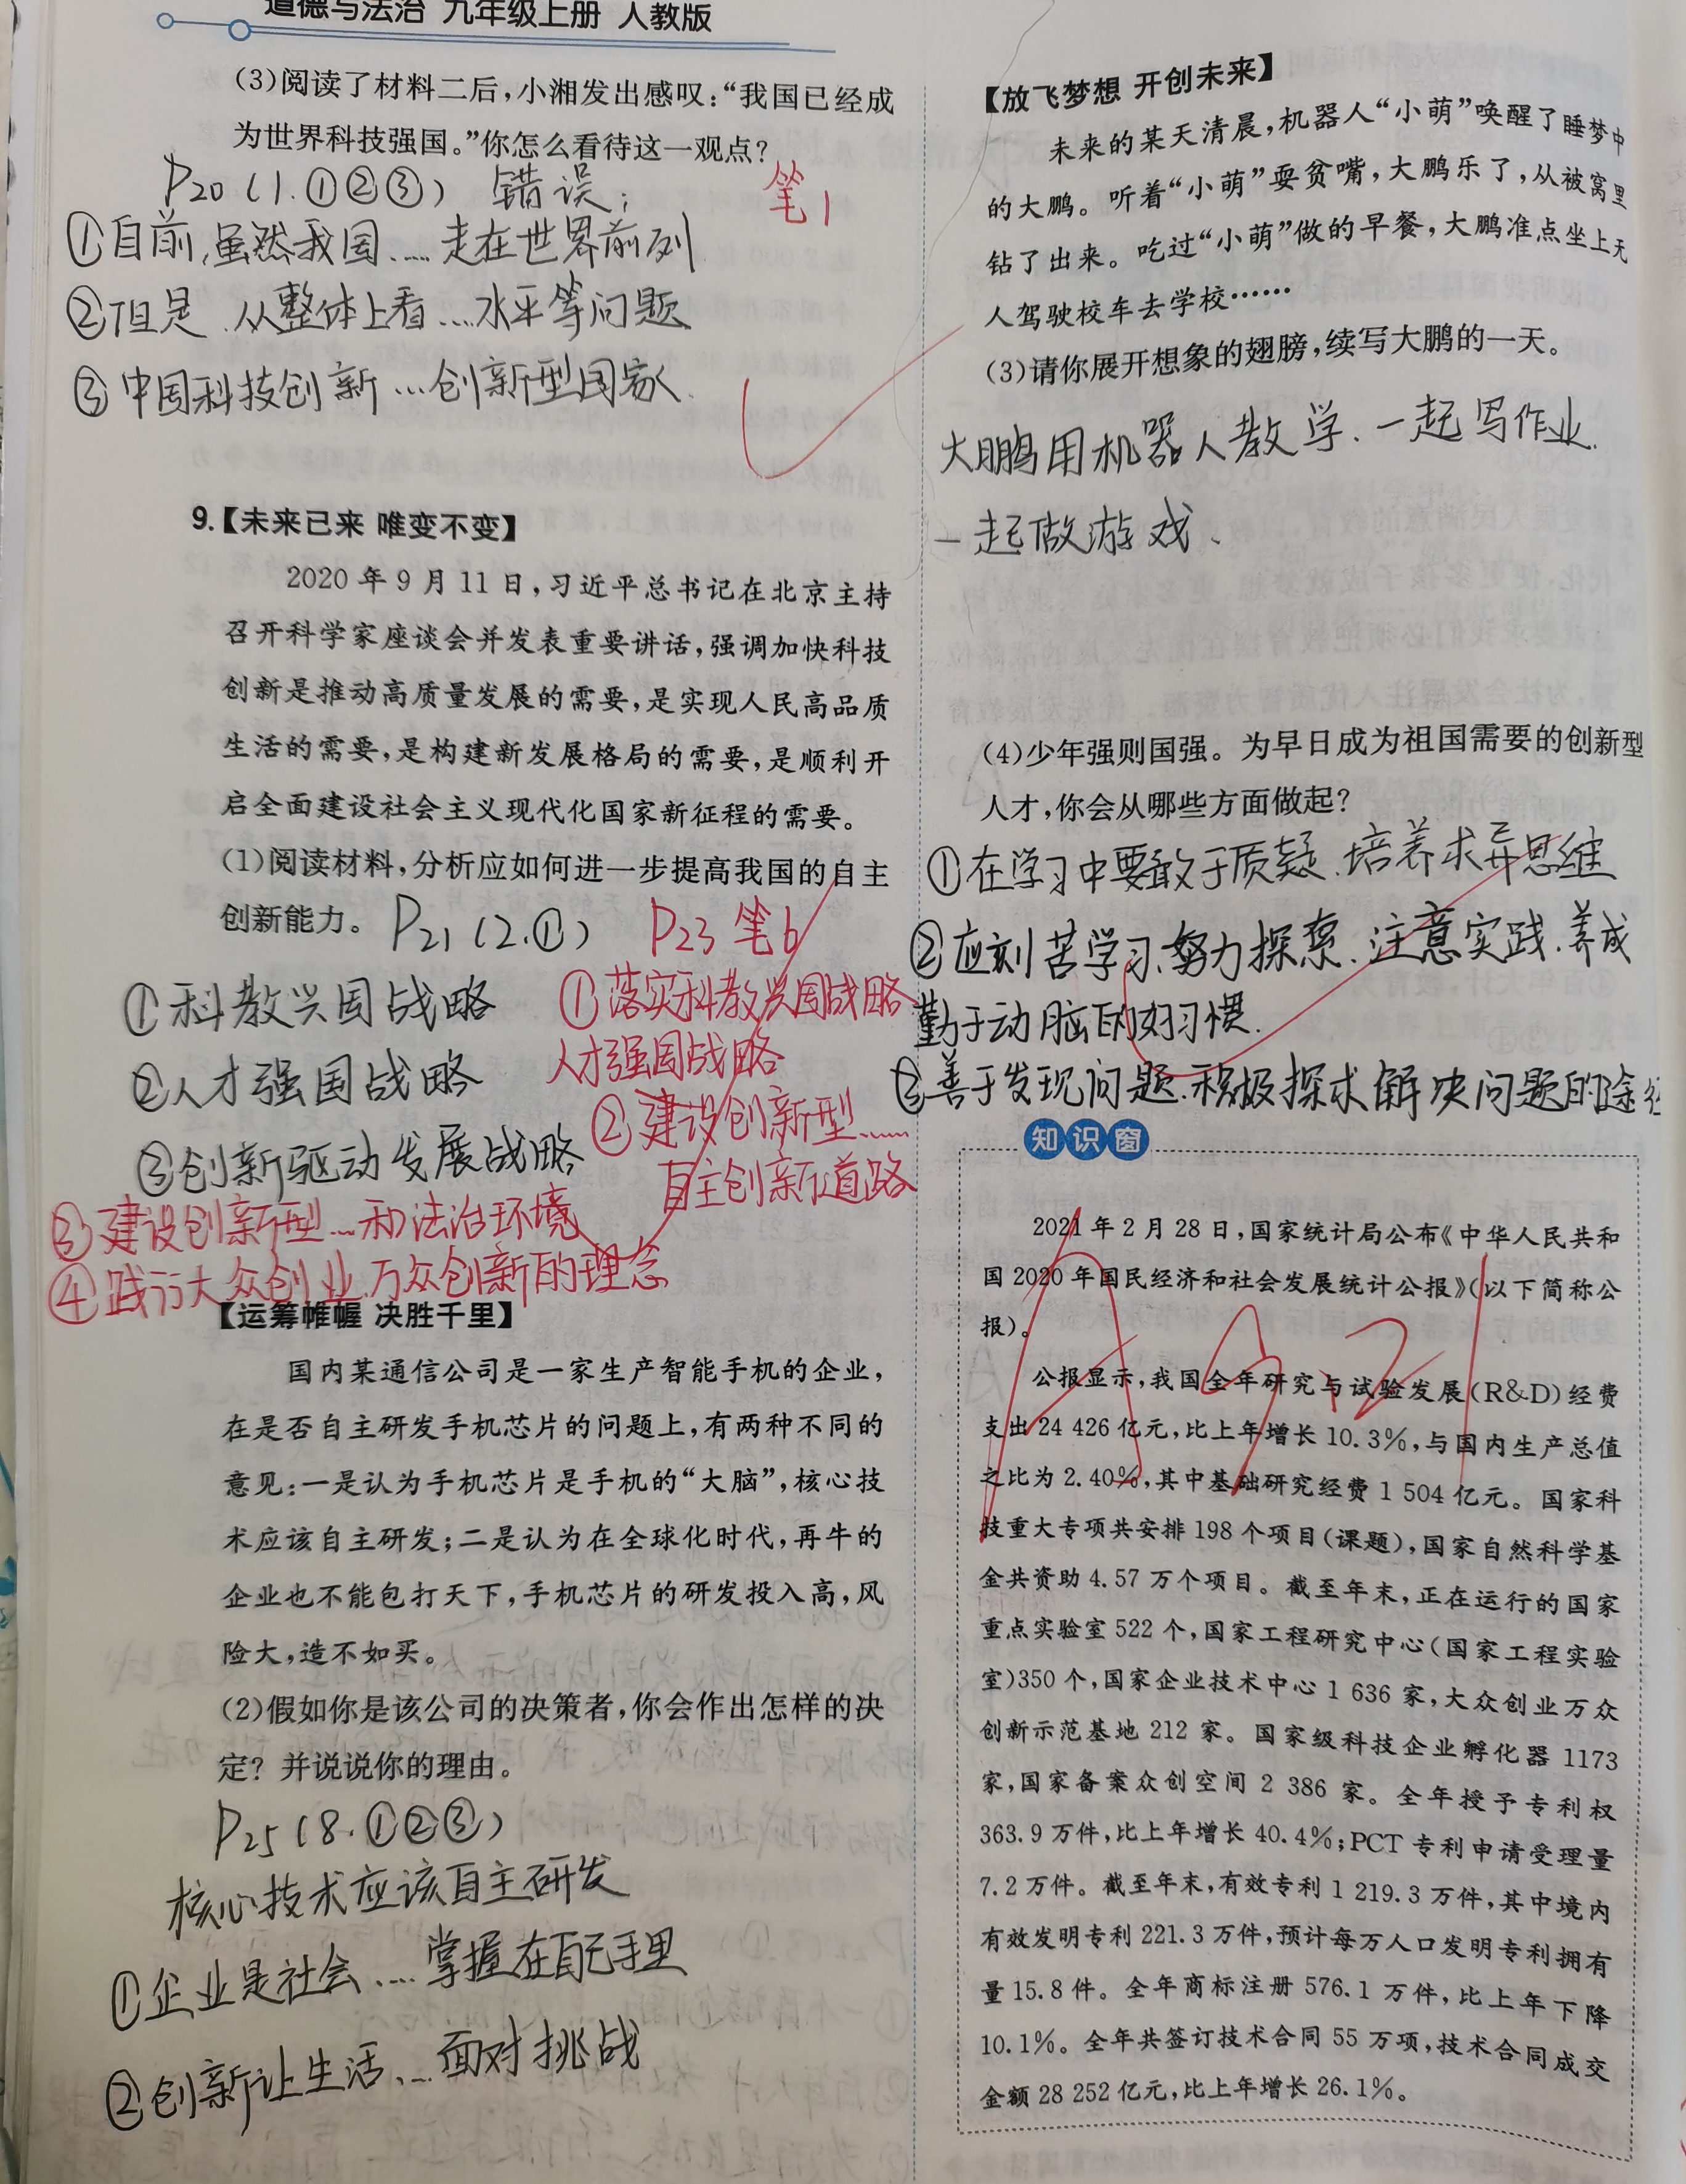 道德与法治 九年级上册 人教版
(3)阅读了材料二后,小湘发出感叹:“我国已经成
为世界科技强国。”你怎么看待这一观点?
P20(1.①②③) 错误;
笔1
①目前,虽然我国……走在世界前列
②但是,从整体上看…水平等问题
③中国科技创新…创新型国家
9.【未来已来 唯变不变】
2020年9月11日,习近平总书记在北京主持
召开科学家座谈会并发表重要讲话,强调加快科技
创新是推动高质量发展的需要,是实现人民高品质
生活的需要,是构建新发展格局的需要,是顺利开
启全面建设社会主义现代化国家新征程的需要。
(1)阅读材料,分析应如何进一步提高我国的自主
创新能力。
P21(2.①)
P23 笔6
①科教兴国战略
②人才强国战略
③创新驱动发展战略
①落实科教兴国战略
人才强国战略
②建设创新型……
自主创新道路
③建设创新型…和法治环境
④践行大众创业、万众创新的理念
【运筹帷幄 决胜千里】
国内某通信公司是一家生产智能手机的企业,
在是否自主研发手机芯片的问题上,有两种不同的
意见:一是认为手机芯片是手机的“大脑”,核心技
术应该自主研发;二是认为在全球化时代,再牛的
企业也不能包打天下,手机芯片的研发投入高,风
险大,造不如买。
(2)假如你是该公司的决策者,你会作出怎样的决
定? 并说说你的理由。
P25(8.①②③)
核心技术应该自主研发
①企业是社会……掌握在自己手里
②创新让生活……面对挑战
【放飞梦想 开创未来】
未来的某天清晨,机器人“小萌”唤醒了睡梦中
的大鹏。听着“小萌”耍贫嘴,大鹏乐了,从被窝里
钻了出来。吃过“小萌”做的早餐,大鹏准点坐上无
人驾驶校车去学校……
(3)请你展开想象的翅膀,续写大鹏的一天。
大鹏用机器人教学、一起写作业、
一起做游戏、
(4)少年强则国强。为早日成为祖国需要的创新型
人才,你会从哪些方面做起?
①在学习中要敢于质疑、培养求异思维
②应刻苦学习、努力探索、注意实践、养成
勤于动脑的好习惯.
③善于发现问题.积极探求解决问题的途径
知识窗
2021年2月28日,国家统计局公布《中华人民共和
国2020年国民经济和社会发展统计公报》(以下简称公
报)。
公报显示,我国全年研究与试验发展(R&D)经费
支出24 426亿元,比上年增长10.3%,与国内生产总值
之比为2.40%,其中基础研究经费1 504亿元。国家科
技重大专项共安排198个项目(课题),国家自然科学基
金共资助4.57万个项目。截至年末,正在运行的国家
重点实验室522个,国家工程研究中心(国家工程实验
室)350个,国家企业技术中心1 636家,大众创业万众
创新示范基地212家。国家级科技企业孵化器1173
家,国家备案众创空间2 386家。全年授予专利权
363.9万件,比上年增长40.4%;PCT专利申请受理量
7.2万件。截至年末,有效专利1 219.3万件,其中境内
有效发明专利221.3万件,预计每万人口发明专利拥有
量15.8件。全年商标注册576.1万件,比上年下降
10.1%。全年共签订技术合同55万项,技术合同成交
金额28 252亿元,比上年增长26.1%。